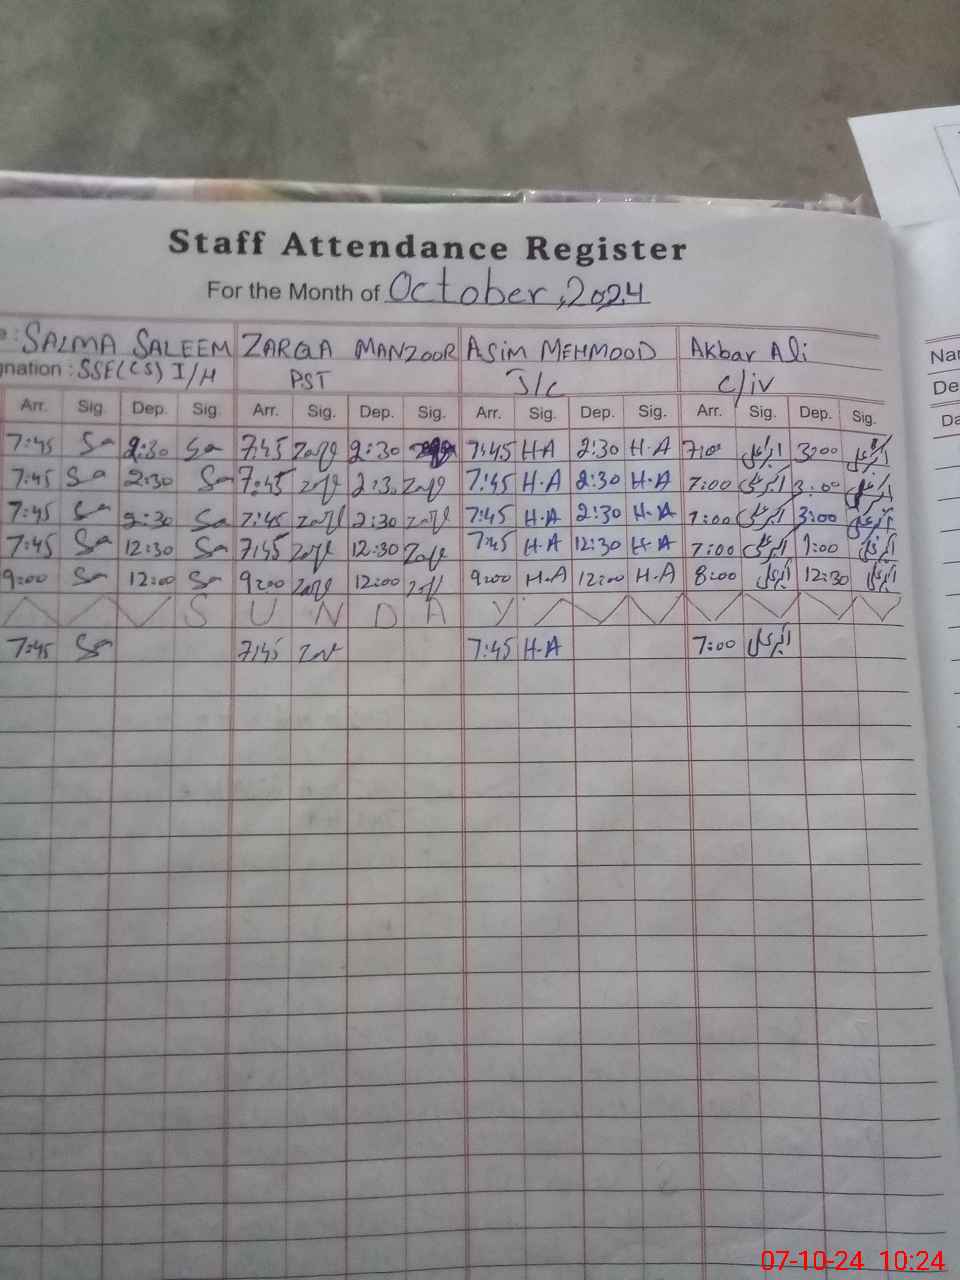 Staff Attendance Register
For the Month of October, 2024
SALMA SALEEM ZARQA MANZOOR ASIM MEHMOOD Akbar Ali
gnation : SSE(CS) I/H PST J/C C/iv
Arr. Sig. Dep. Sig. Arr. Sig. Dep. Sig. Arr. Sig. Dep. Sig. Arr. Sig. Dep. Sig.
7:45 Sa 2:30 Sa 7:45 2:30 7:45 H-A 2:30 H-A 7:00 3:00
7:45 Sa 2:30 Sa 7:45 2:30 7:45 H.A 2:30 H.A 7:00 3:00
7:45 Sa 2:30 Sa 7:45 2:30 7:45 H.A 2:30 H.A 7:00 3:00
7:45 Sa 12:30 Sa 7:45 12:30 7:45 H.A 12:30 H.A 7:00 1:00
9:00 Sa 12:00 Sa 9:00 12:00 9:00 H.A 12:00 H.A 8:00 12:30
S U N D A Y
7:45 Sa 7:45 7:45 H.A 7:00
Nar
De
Da
07-10-24 10:24